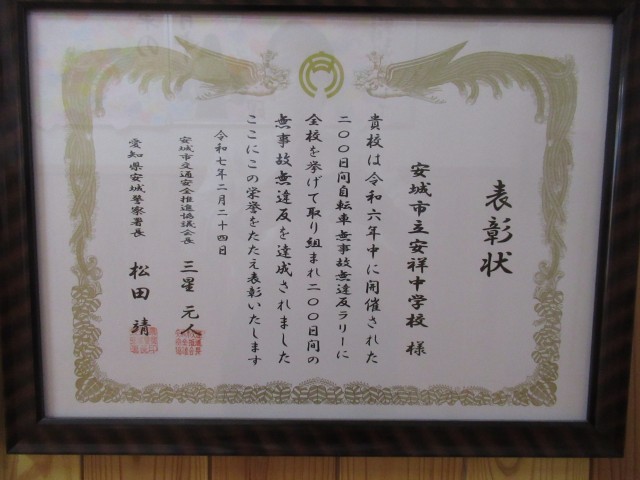 表彰状
安城市立安祥中学校 様
貴校は令和六年中に開催された
二〇〇日間自転車無事故無違反ラリーに
全校を挙げて取り組まれ二〇〇日間の
無事故無違反を達成されました
ここにこの栄誉をたたえ表彰いたします
令和七年二月二十四日
安城市交通安全推進協議会長 三星 元人
愛知県安城警察署長 松田 靖